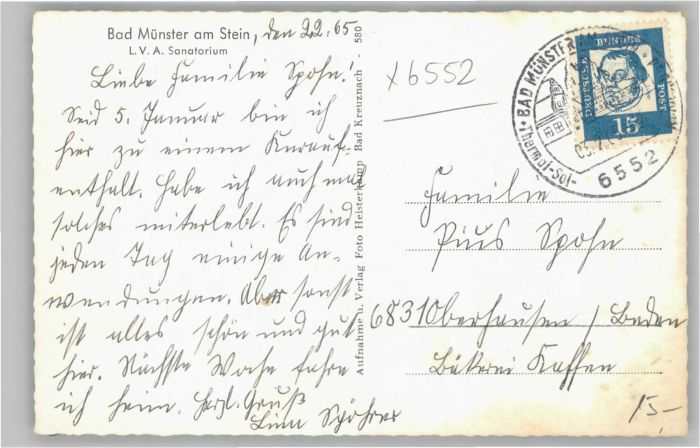 Bad Münster am Stein, den 2.2.65
L.V.A. Sanatorium
Liebe Familie Spohn!
Seid 5. Januar bin ich
hier zu einem Kurauf-
enthalt. Habe ich auch mal
solches miterlebt. Es sind
jeden Tag einige An-
wendungen. Aber sonst
ist alles schön und gut
hier. Nächste Woche fahre
ich heim. Herzl. Gruß
Spöhrer
Aufnahme u. Verlag Foto Heisterkamp Bad Kreuznach 580
x6552
BAD MÜNSTER AM
Thermal-Sol-
6552
DEUTSCHE BUNDESPOST
15
Familie
Pius Spohn
6831 Oberhausen / Baden
Bäkerei Kaffen
15,-